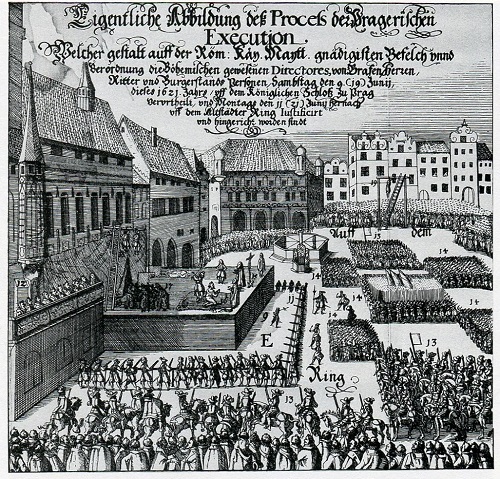 Eigentliche Abbildung deß Process der Pragerischen
Execution.
Welcher gestalt auff der Röm: Käy. Maytt. gnädigisten Befelch vnnd
Verordnung die Böhemischen gewesenen Directores, von Grafen, Herren,
Ritter vnd Burgerstands Personen, Sambstag den 9. (19) Junij,
dieses 1621 Jahrs vff dem Königlichen Schloß zu Prag
Vervrtheilt, vnd Montags den 11 (21) Junij hernach
vff dem Altstädter Ring Iustificirt
vnd hingericht worden sindt
19
15
Auff dem
14
14
12
11
14
14
9
E
13
Ring
13